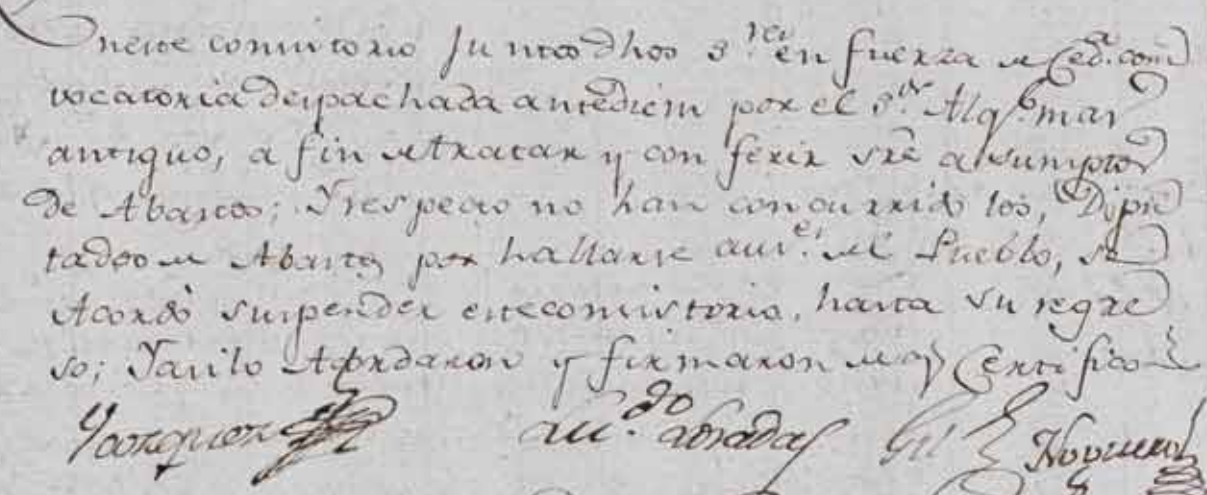 En este comistorio Juntos dhos S.res en fuerza de Ced.a com
vocatoria despachada antediem por el S.or Alg.l mar
antiguo, a fin de tratar y conferir sre asumptos
de Abastos; Y respecto no han concurrido los, Dipu
tados de Abastos por hallarse aus.es del Pueblo, se
Acordò suspender este comistorio, hasta su regre
so; Y asi lo Acordaron y firmaron de q Certifico=
Licdo. Abadas Gil Noguerol